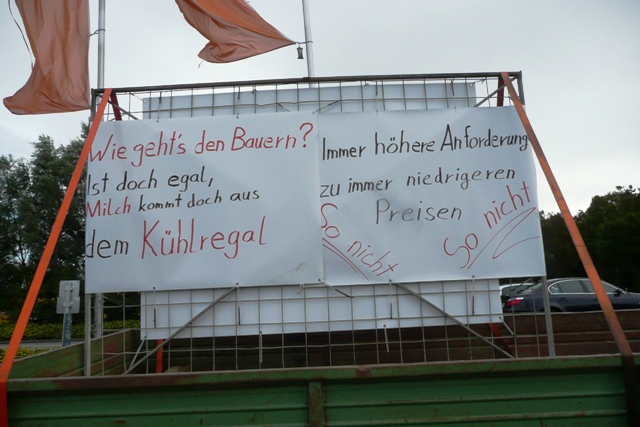 Wie geht's den Bauern?
Ist doch egal,
Milch kommt doch aus
dem Kühlregal
Immer höhere Anforderung
zu immer niedrigeren
Preisen
So nicht
So nicht